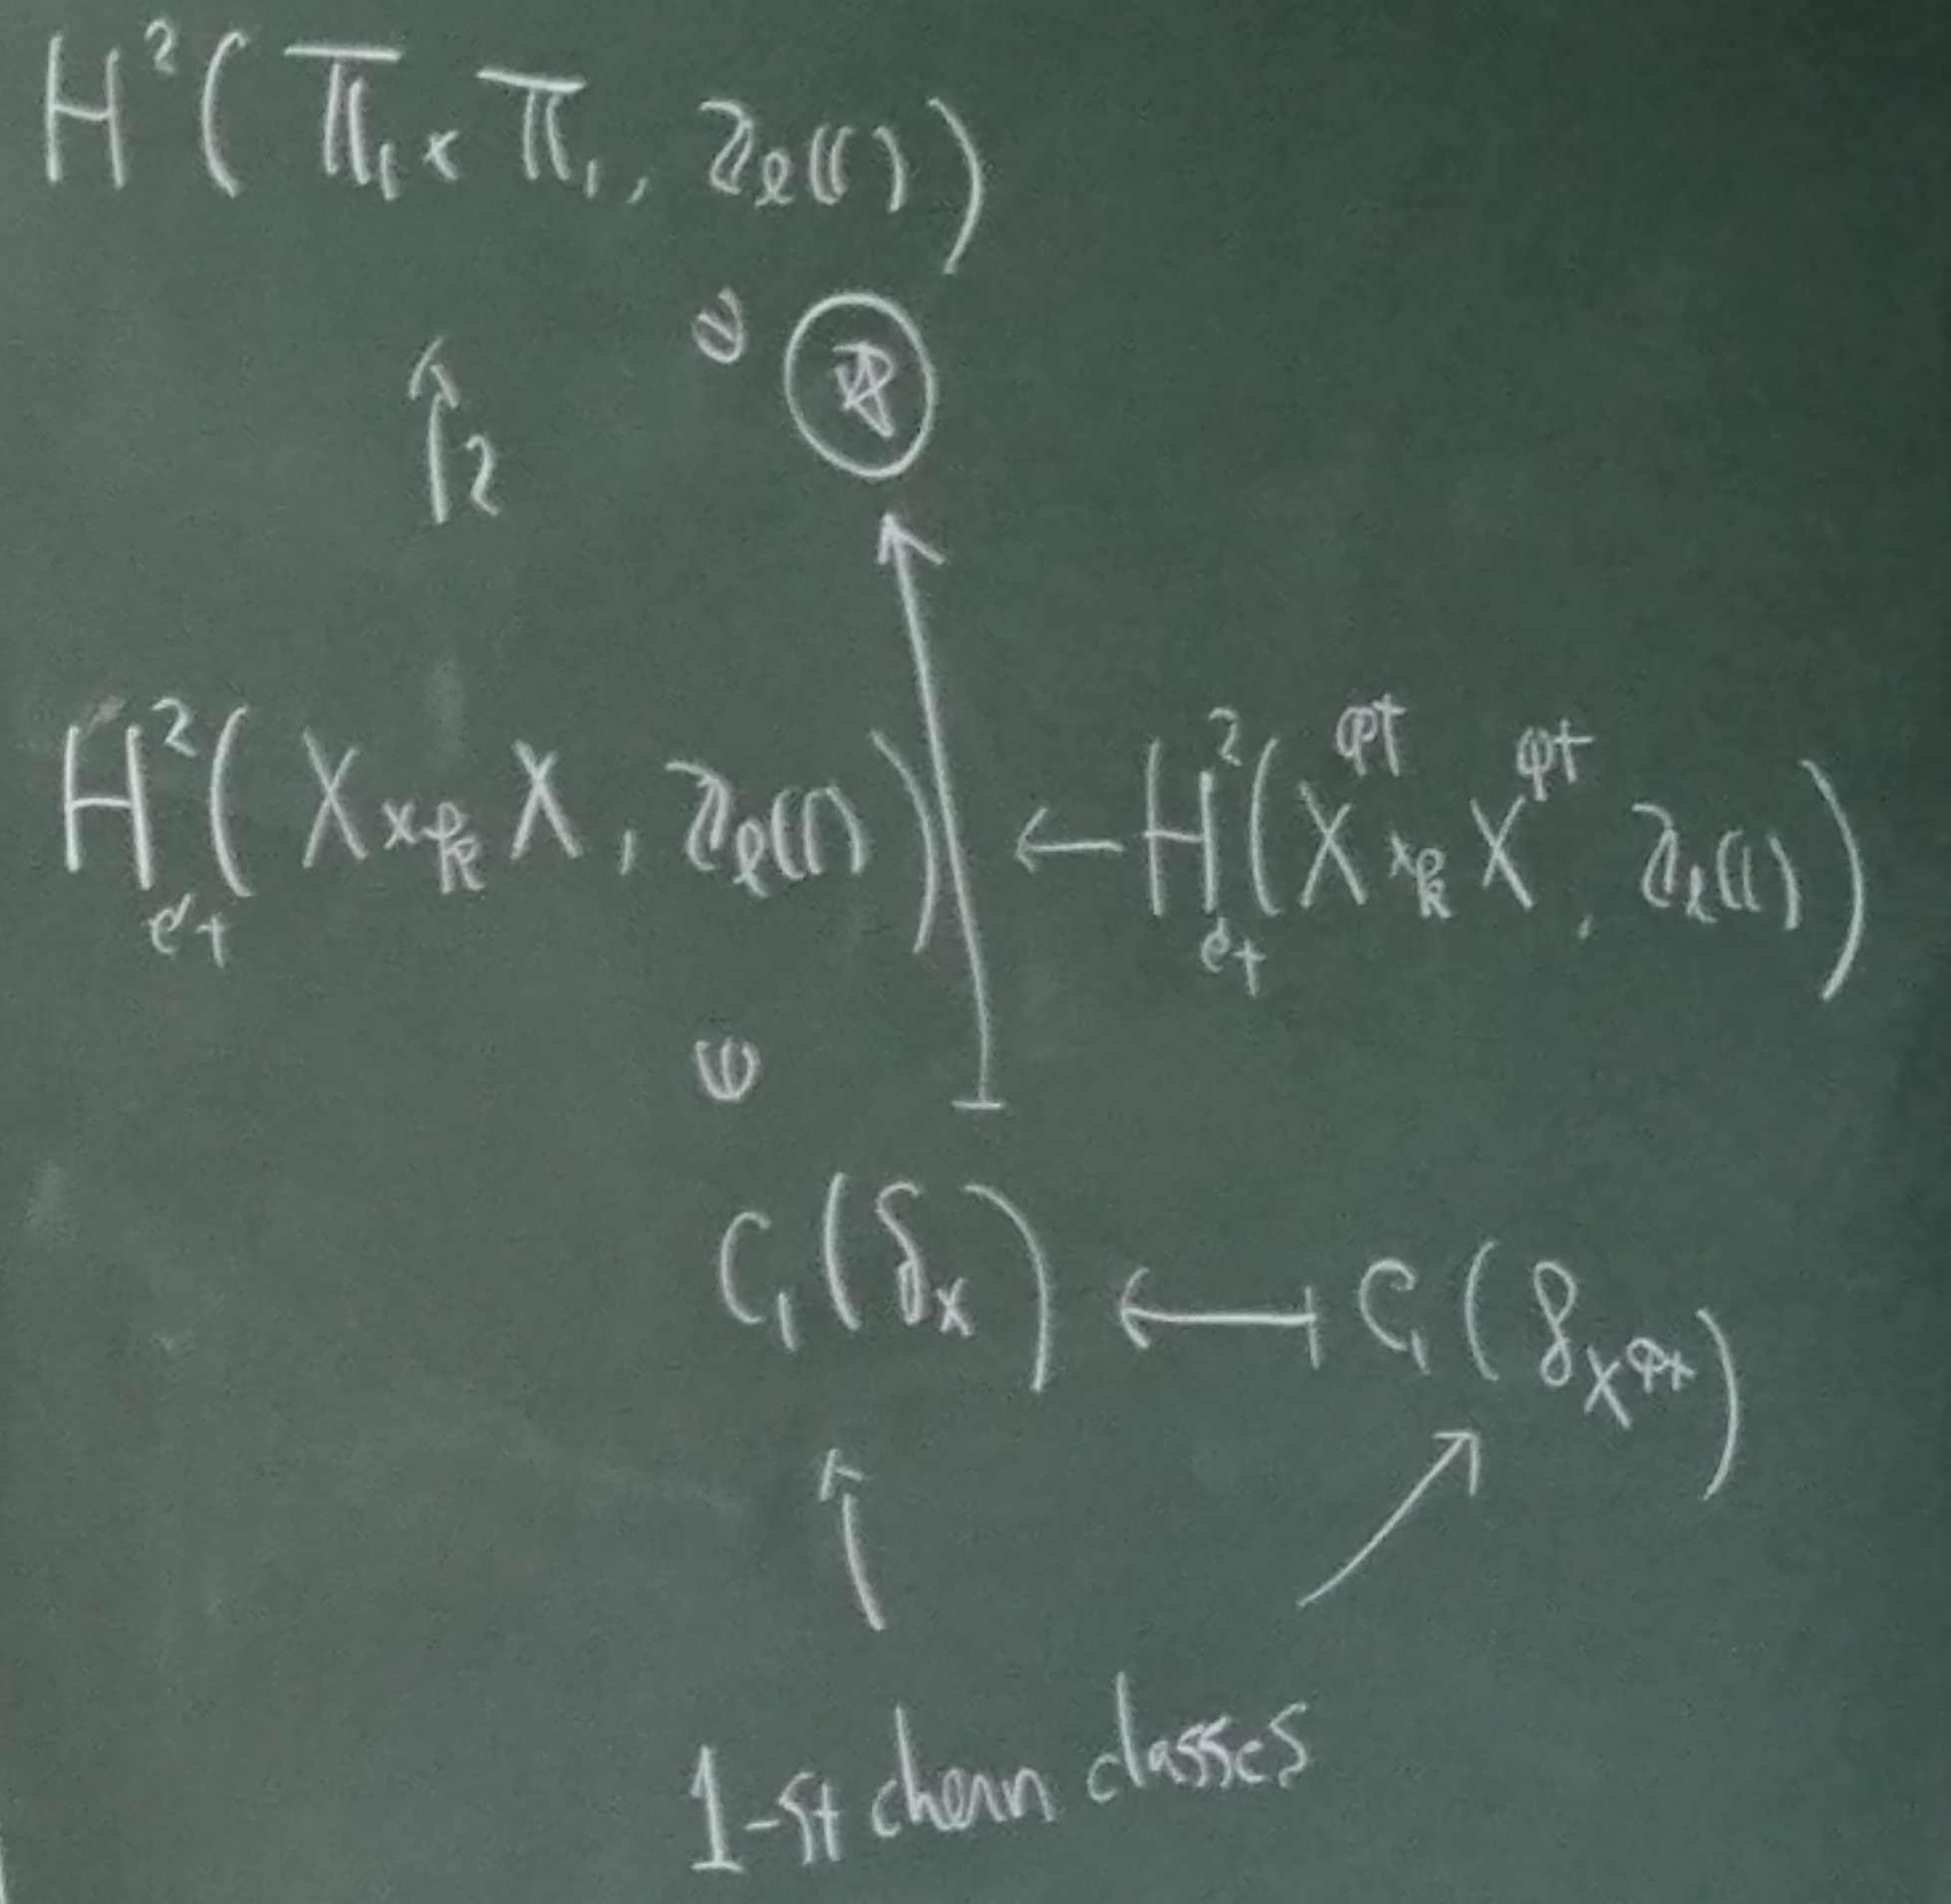 H²(π₁×π₁, ℤℓ(1))
∪ ☆
↑≀
H²ét(X×k̄X, ℤℓ(1)) ← H²ét(X^cpt×k̄X^cpt, ℤℓ(1))
∪
C₁(δ_X) ↤ C₁(δ_X^cpt)
1-st chern classes